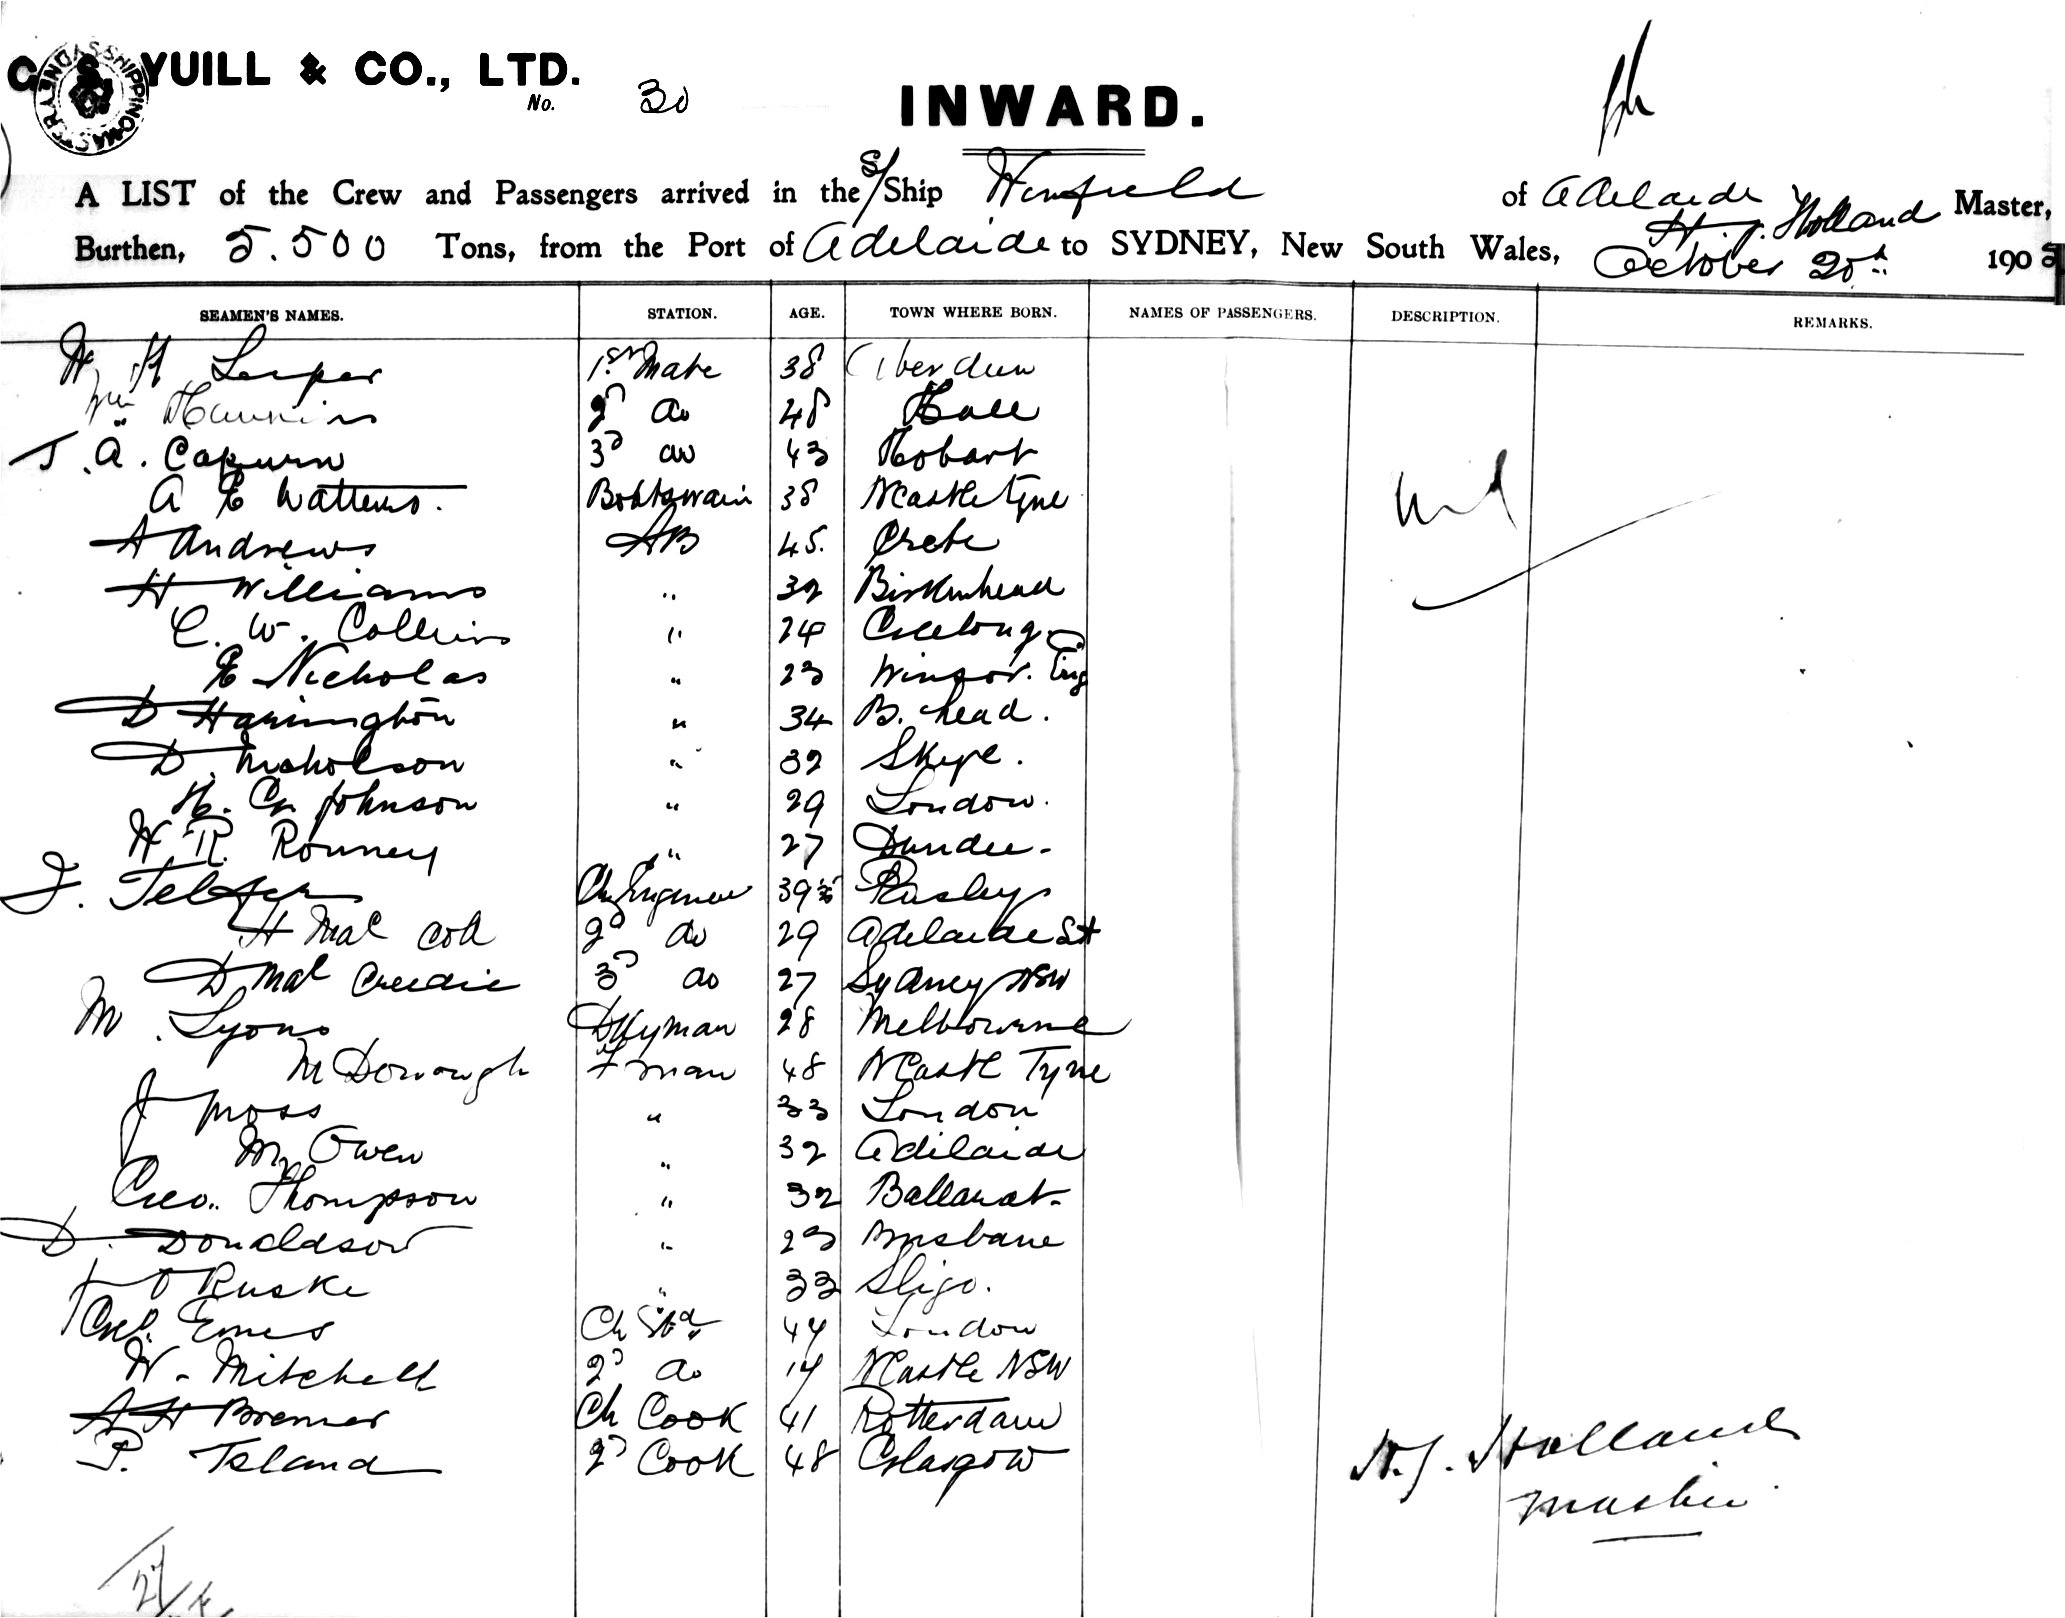 YUILL & CO., LTD.
No. 30
INWARD.
A LIST of the Crew and Passengers arrived in the S/Ship Winfield of Adelaide H. J. Holland Master,
Burthen, 5.500 Tons, from the Port of Adelaide to SYDNEY, New South Wales, October 20th 190
SEAMEN'S NAMES. STATION. AGE. TOWN WHERE BORN. NAMES OF PASSENGERS. DESCRIPTION. REMARKS.
W H Leiper 1st Mate 38 Aberdeen
Wm Hawkins 2d do 48 Hull
J. A. Capurn 3d do 43 Hobart
A E Watters. Boatswain 38 NCastle Tyne
A Andrews AB 45. Crete
H Williams " 32 Birkenhead
C. W. Collins " 24 Geelong
E Nicholas " 23 Winsor. Eng
D Harrington " 34 B. head.
D. Nicholson " 32 Skye.
H. G. Johnson " 29 London.
W R. Ronney " 27 Dundee-
J. Telfer Ch Engineer 39 Paisley
H MacColl 2d do 29 Adelaide SA
D MacCreadie 3d do 27 Sydney NSW
M. Lyons Dkyman 28 Melbourne
McDonough Fman 48 NCastle Tyne
J Moss " 33 London
M Owen " 32 Adelaide
Geo. Thompson " 32 Ballarat-
D. Donaldson " 23 Brisbane
J O Ruske " 33 Sligo.
Emes Ch Std 44 London
W. Mitchell 2d do 14 NCastle NSW
A H Bremer Ch Cook 41 Rotterdam
P. Island 2d Cook 48 Glasgow
H. J. Holland
Master